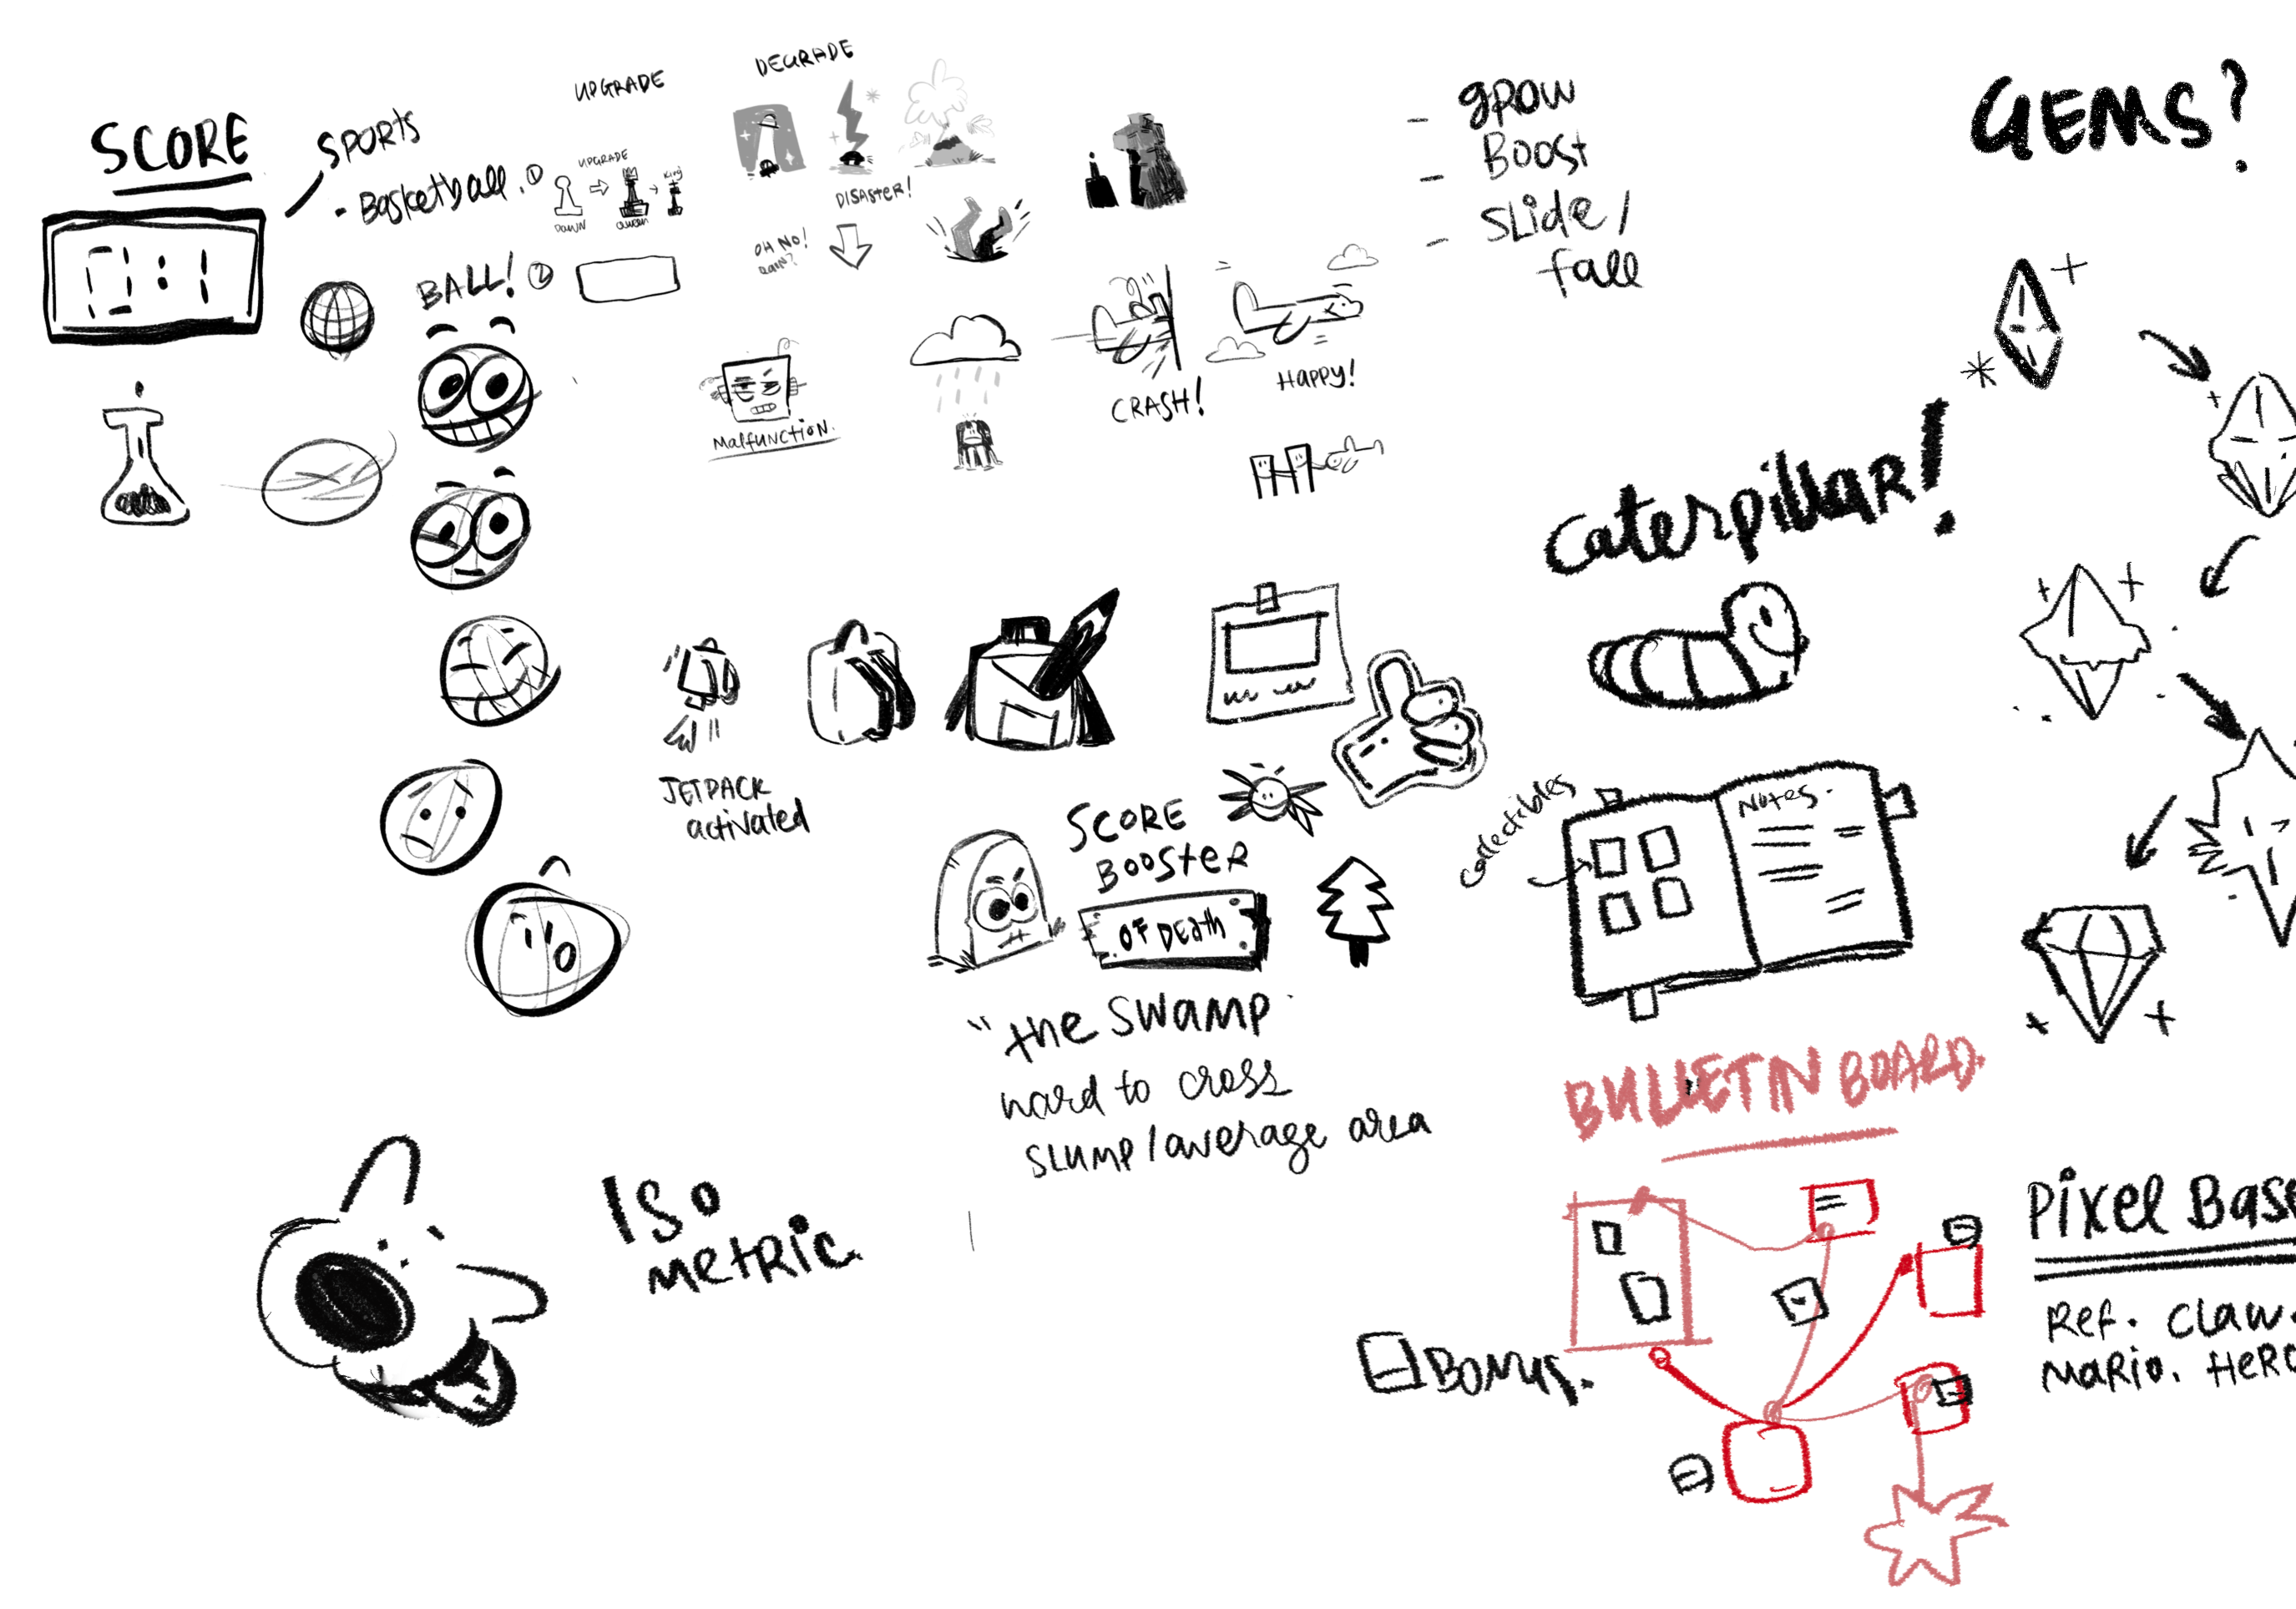 SCORE
SPORTS
- Basketball. ①
BALL! ②
UPGRADE
UPGRADE
PAWN
QUEEN
King
DEGRADE
DISASTER!
OH NO!
RAIN?
Malfunction.
CRASH!
HAPPY!
- grow
- Boost
- Slide /
fall
GEMS?
Caterpillar!
JETPACK
activated
SCORE
BOOSTER
OF DEATH
"the swamp
hard to cross
slump/average area
Collectibles
Notes.
ISO
METRIC
BULLETIN BOARD.
BONUS.
Pixel Base
Ref. Claw.
MARIO. HERO